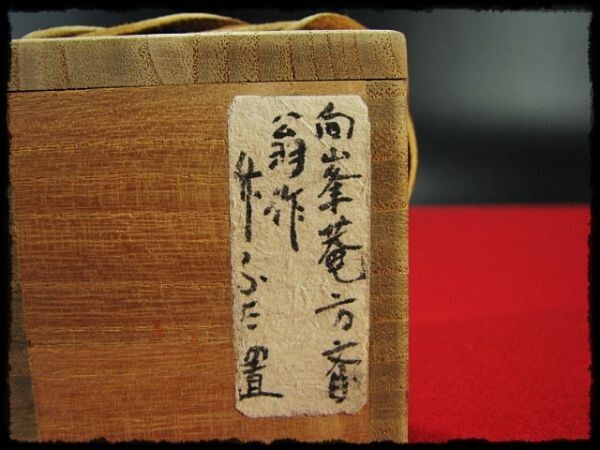 向峯菴方斎
翁作
竹ふた置